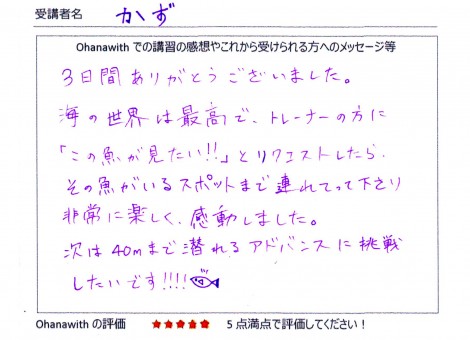 受講者名 かず
Ohanawith での講習の感想やこれから受けられる方へのメッセージ等
3日間ありがとうございました。
海の世界は最高で、トレーナーの方に
「この魚が見たい!!」とリクエストしたら、
その魚がいるスポットまで連れてって下さり
非常に楽しく、感動しました。
次は40mまで潜れるアドバンスに挑戦
したいです!!!!
Ohanawith の評価 ★★★★★ 5点満点で評価してください!